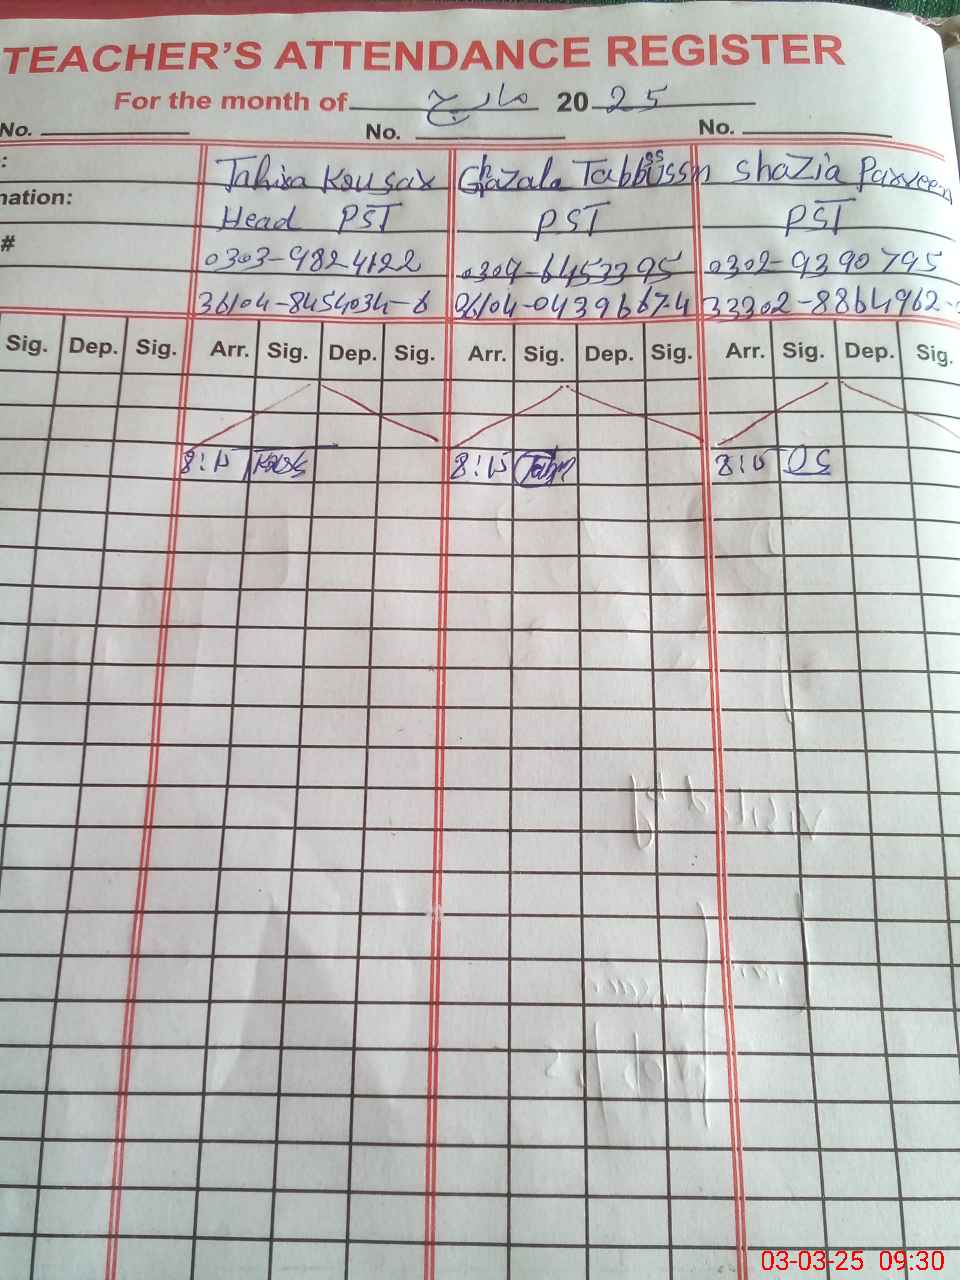 TEACHER'S ATTENDANCE REGISTER
For the month of مارچ 20 25
No. No. No.
: Tahira Kousar Ghazala Tabbussm Shazia Parveen
nation: Head PST PST PST
# 0303-9824122 0309-6453395 0302-9390795
36104-8454034-6 36104-0439667-4 33302-8864962-
Sig. Dep. Sig. Arr. Sig. Dep. Sig. Arr. Sig. Dep. Sig. Arr. Sig. Dep. Sig.
8:15 8:15 8:15
03-03-25 09:30